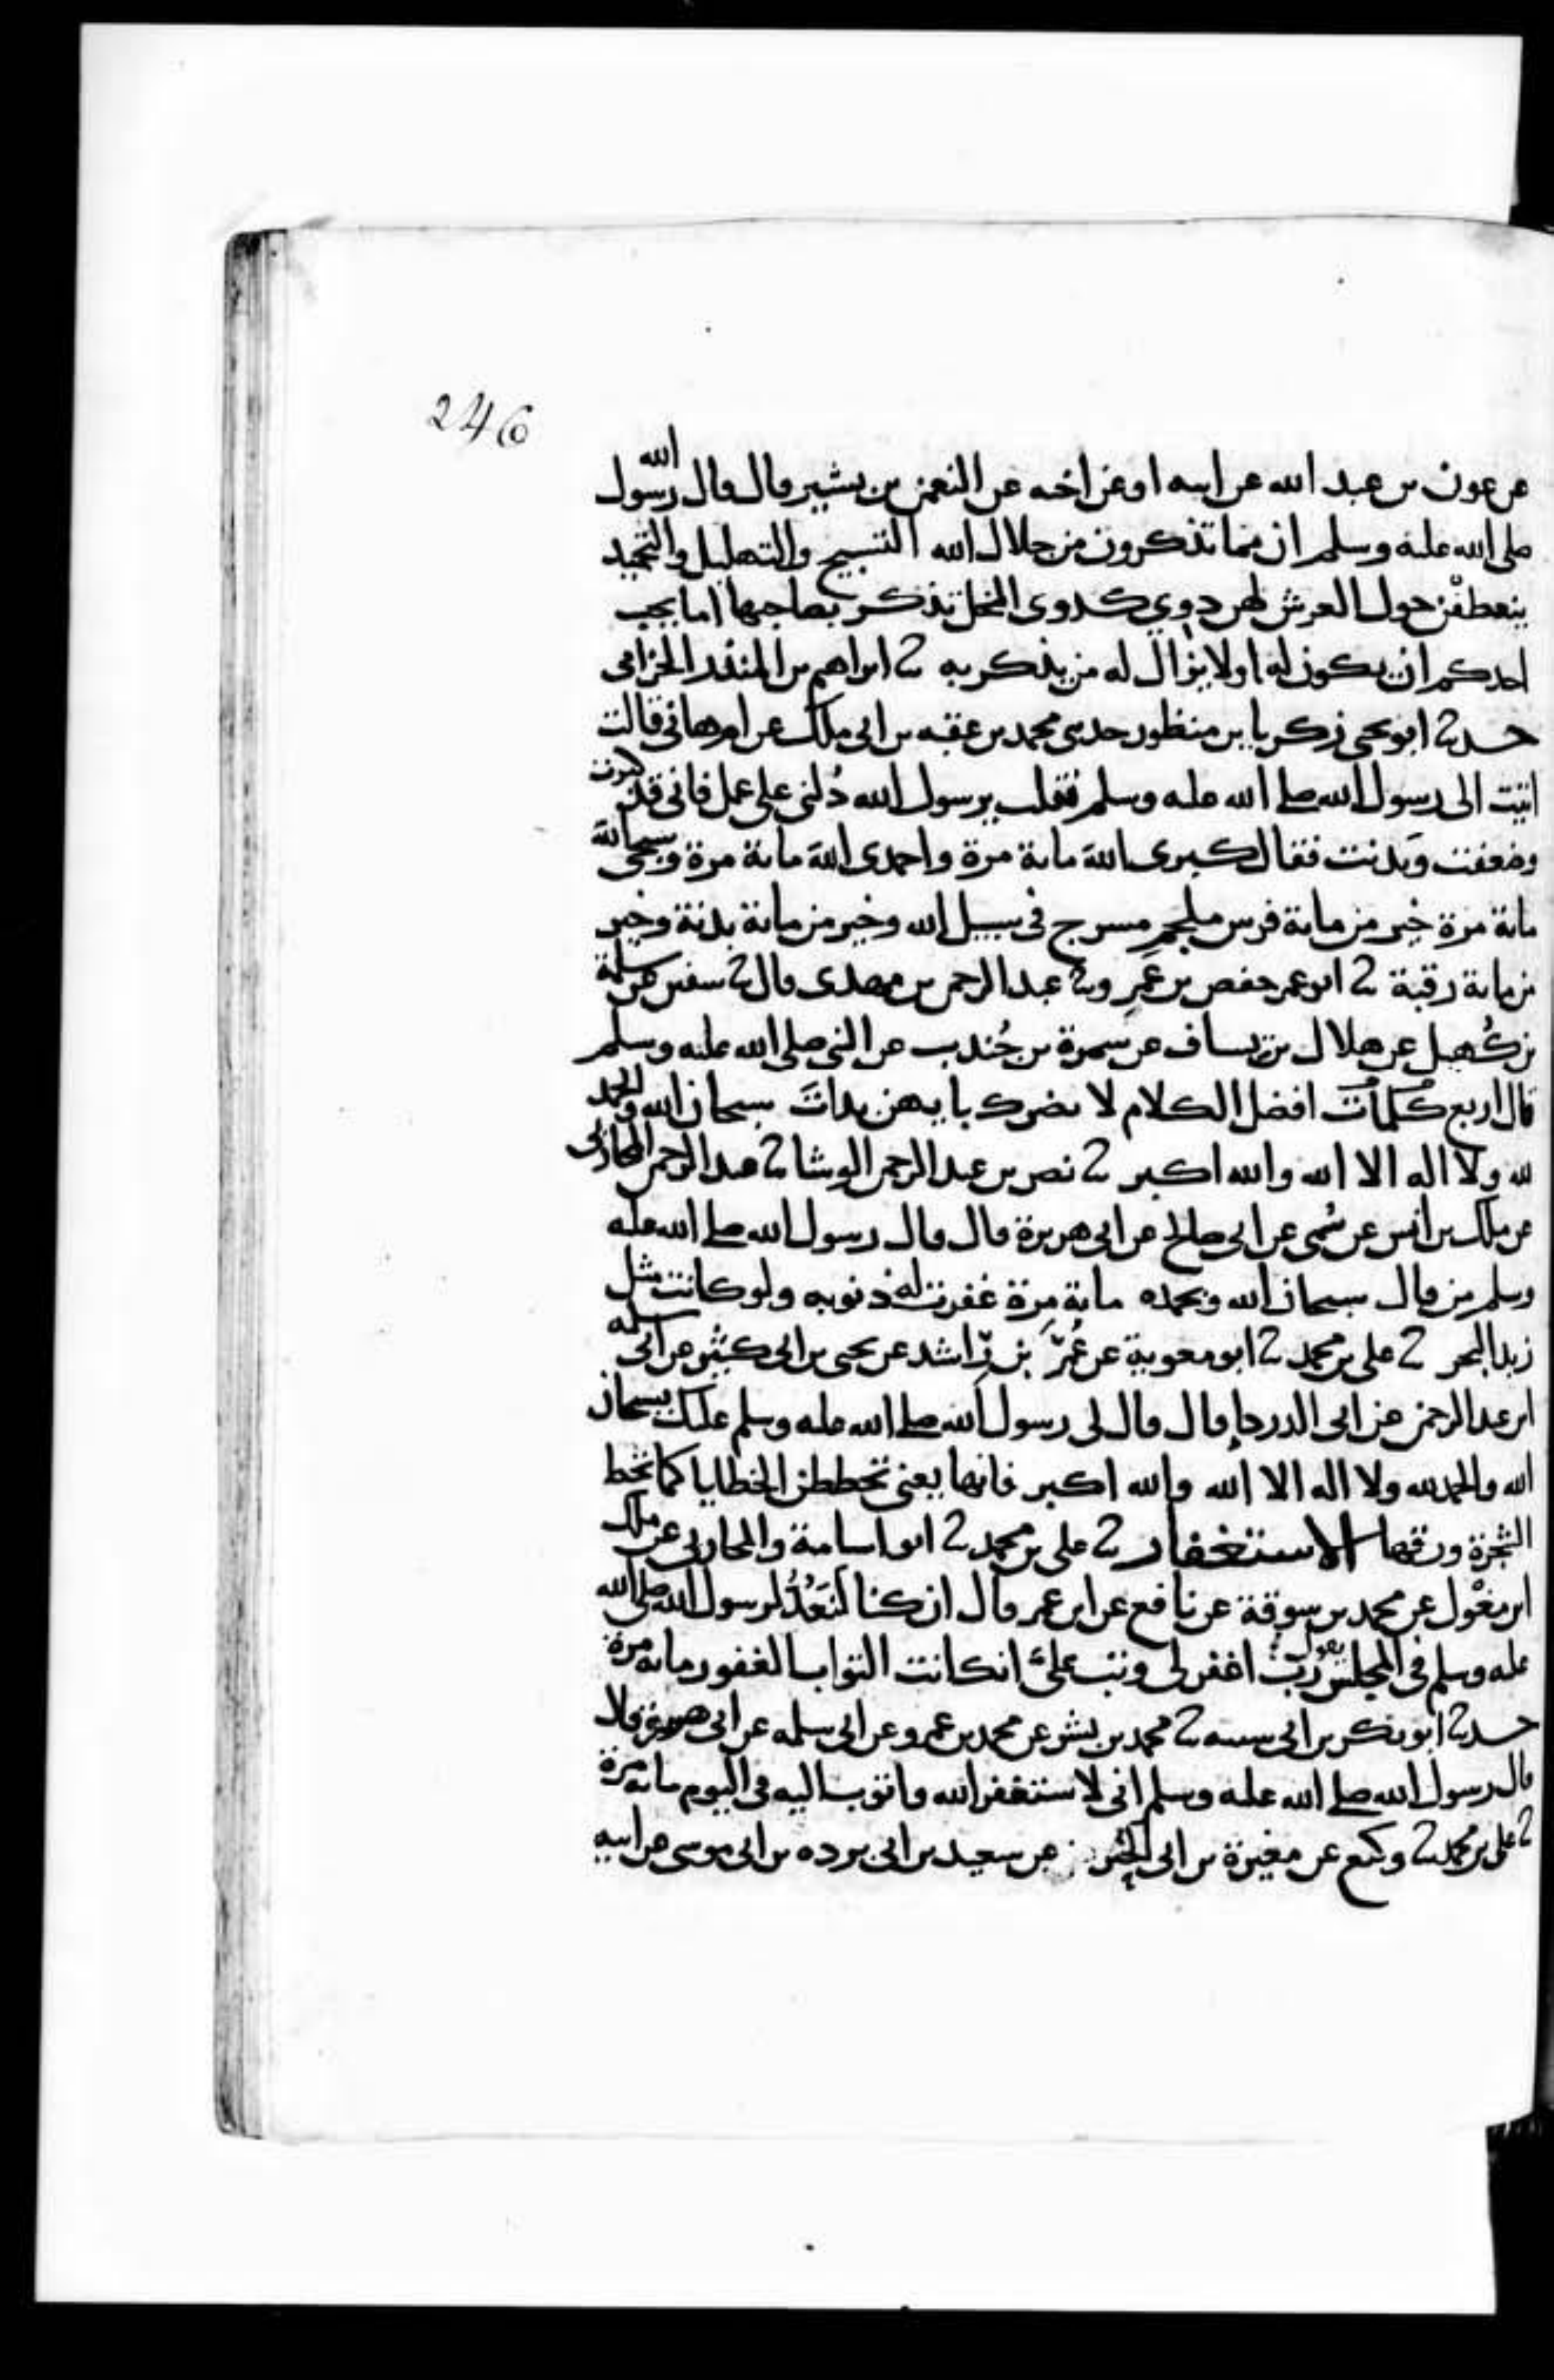 246
عن عون بن عبد الله عن ابيه او عن اخيه عن النعمن بن بشير قال قال رسول الله
صلى الله عليه وسلم ان مما تذكرون من جلال الله التسبيح والتهليل والتحميد
ينعطفن حول العرش لهن دوي كدوى النحل تذكر بصاحبها اما يحب
احدكم ان يكون له او لا يزال له من يذكر به ثنا ابراهيم بن المنذر الحزامى
حدثنا ابو يحيى زكريا بن منظور حدثنى محمد بن عقبه بن ابى ملك عن ام هانى قالت
اتيت الى رسول الله صلى الله عليه وسلم فقلت يرسول الله دُلنى على عمل فانى قد كبرت
وضعفت وبَدنت فقال كبرى اللهَ ماية مرة واحمدى اللهَ ماية مرة وسبحى اللهَ
ماية مرة خير من ماية فرس ملجمٍ مسرج فى سبيل الله وخير من ماية بدنة وخير
من ماية رقبة ثنا ابو عمر حفص بن عَمرٍ وثنا عبد الرحمن بن مهدى قال ثنا سفين عن سلمة
بن كُهيل عن هلال بن يساف عن سمرة بن جُندب عن النبى صلى الله عليه وسلم
قال اربع كلمات افضل الكلام لا يضرك بايهن بداتَ سبحان الله والحمد
لله ولا اله الا الله والله اكبر ثنا نصر بن عبد الرحمن الوشا ثنا عبد الرحمن المحاربى
عن ملك بن انس عن سُمى عن ابى صالح عن ابى هريرة قال قال رسول الله صلى الله عليه
وسلم من قال سبحان الله وبحمده ماية مرة غفرت له ذنوبه ولو كانت مثل
زبد البحر ثنا على بن محمد ثنا ابو معوية عن عُمَر بن راشد عن يحيى بن ابى كثير عن ابى سلمه
ابن عبد الرحمن عن ابى الدرداء قال قال لى رسول الله صلى الله عليه وسلم عليك بسبحان
الله والحمد لله ولا اله الا الله والله اكبر فانها يعنى تحططن الخطايا كما تحط
الشجرة ورقها الاستغفار ثنا على بن محمد ثنا ابو اسامة والمحاربى عن ملك
ابن مغْول عن محمد بن سوقة عن نافع عن ابن عمر قال ان كنا لَنَعُدُّ لرسول الله صلى الله
عليه وسلم فى المجلس يقول رَبِّ اغفر لى وتب علىَّ انك انت التواب الغفور ماية مرة
حدثنا ابو بكر بن ابى شيبه ثنا محمد بن بشر عن محمد بن عمرو عن ابى سلمه عن ابى هريرة قال
قال رسول الله صلى الله عليه وسلم انى لاستغفر الله واتوب اليه فى اليوم ماية مرة
ثنا على بن محمد ثنا وكيع عن مغيرة بن ابى الحُر عن سعيد بن ابى برده بن ابى موسى عن ابيه